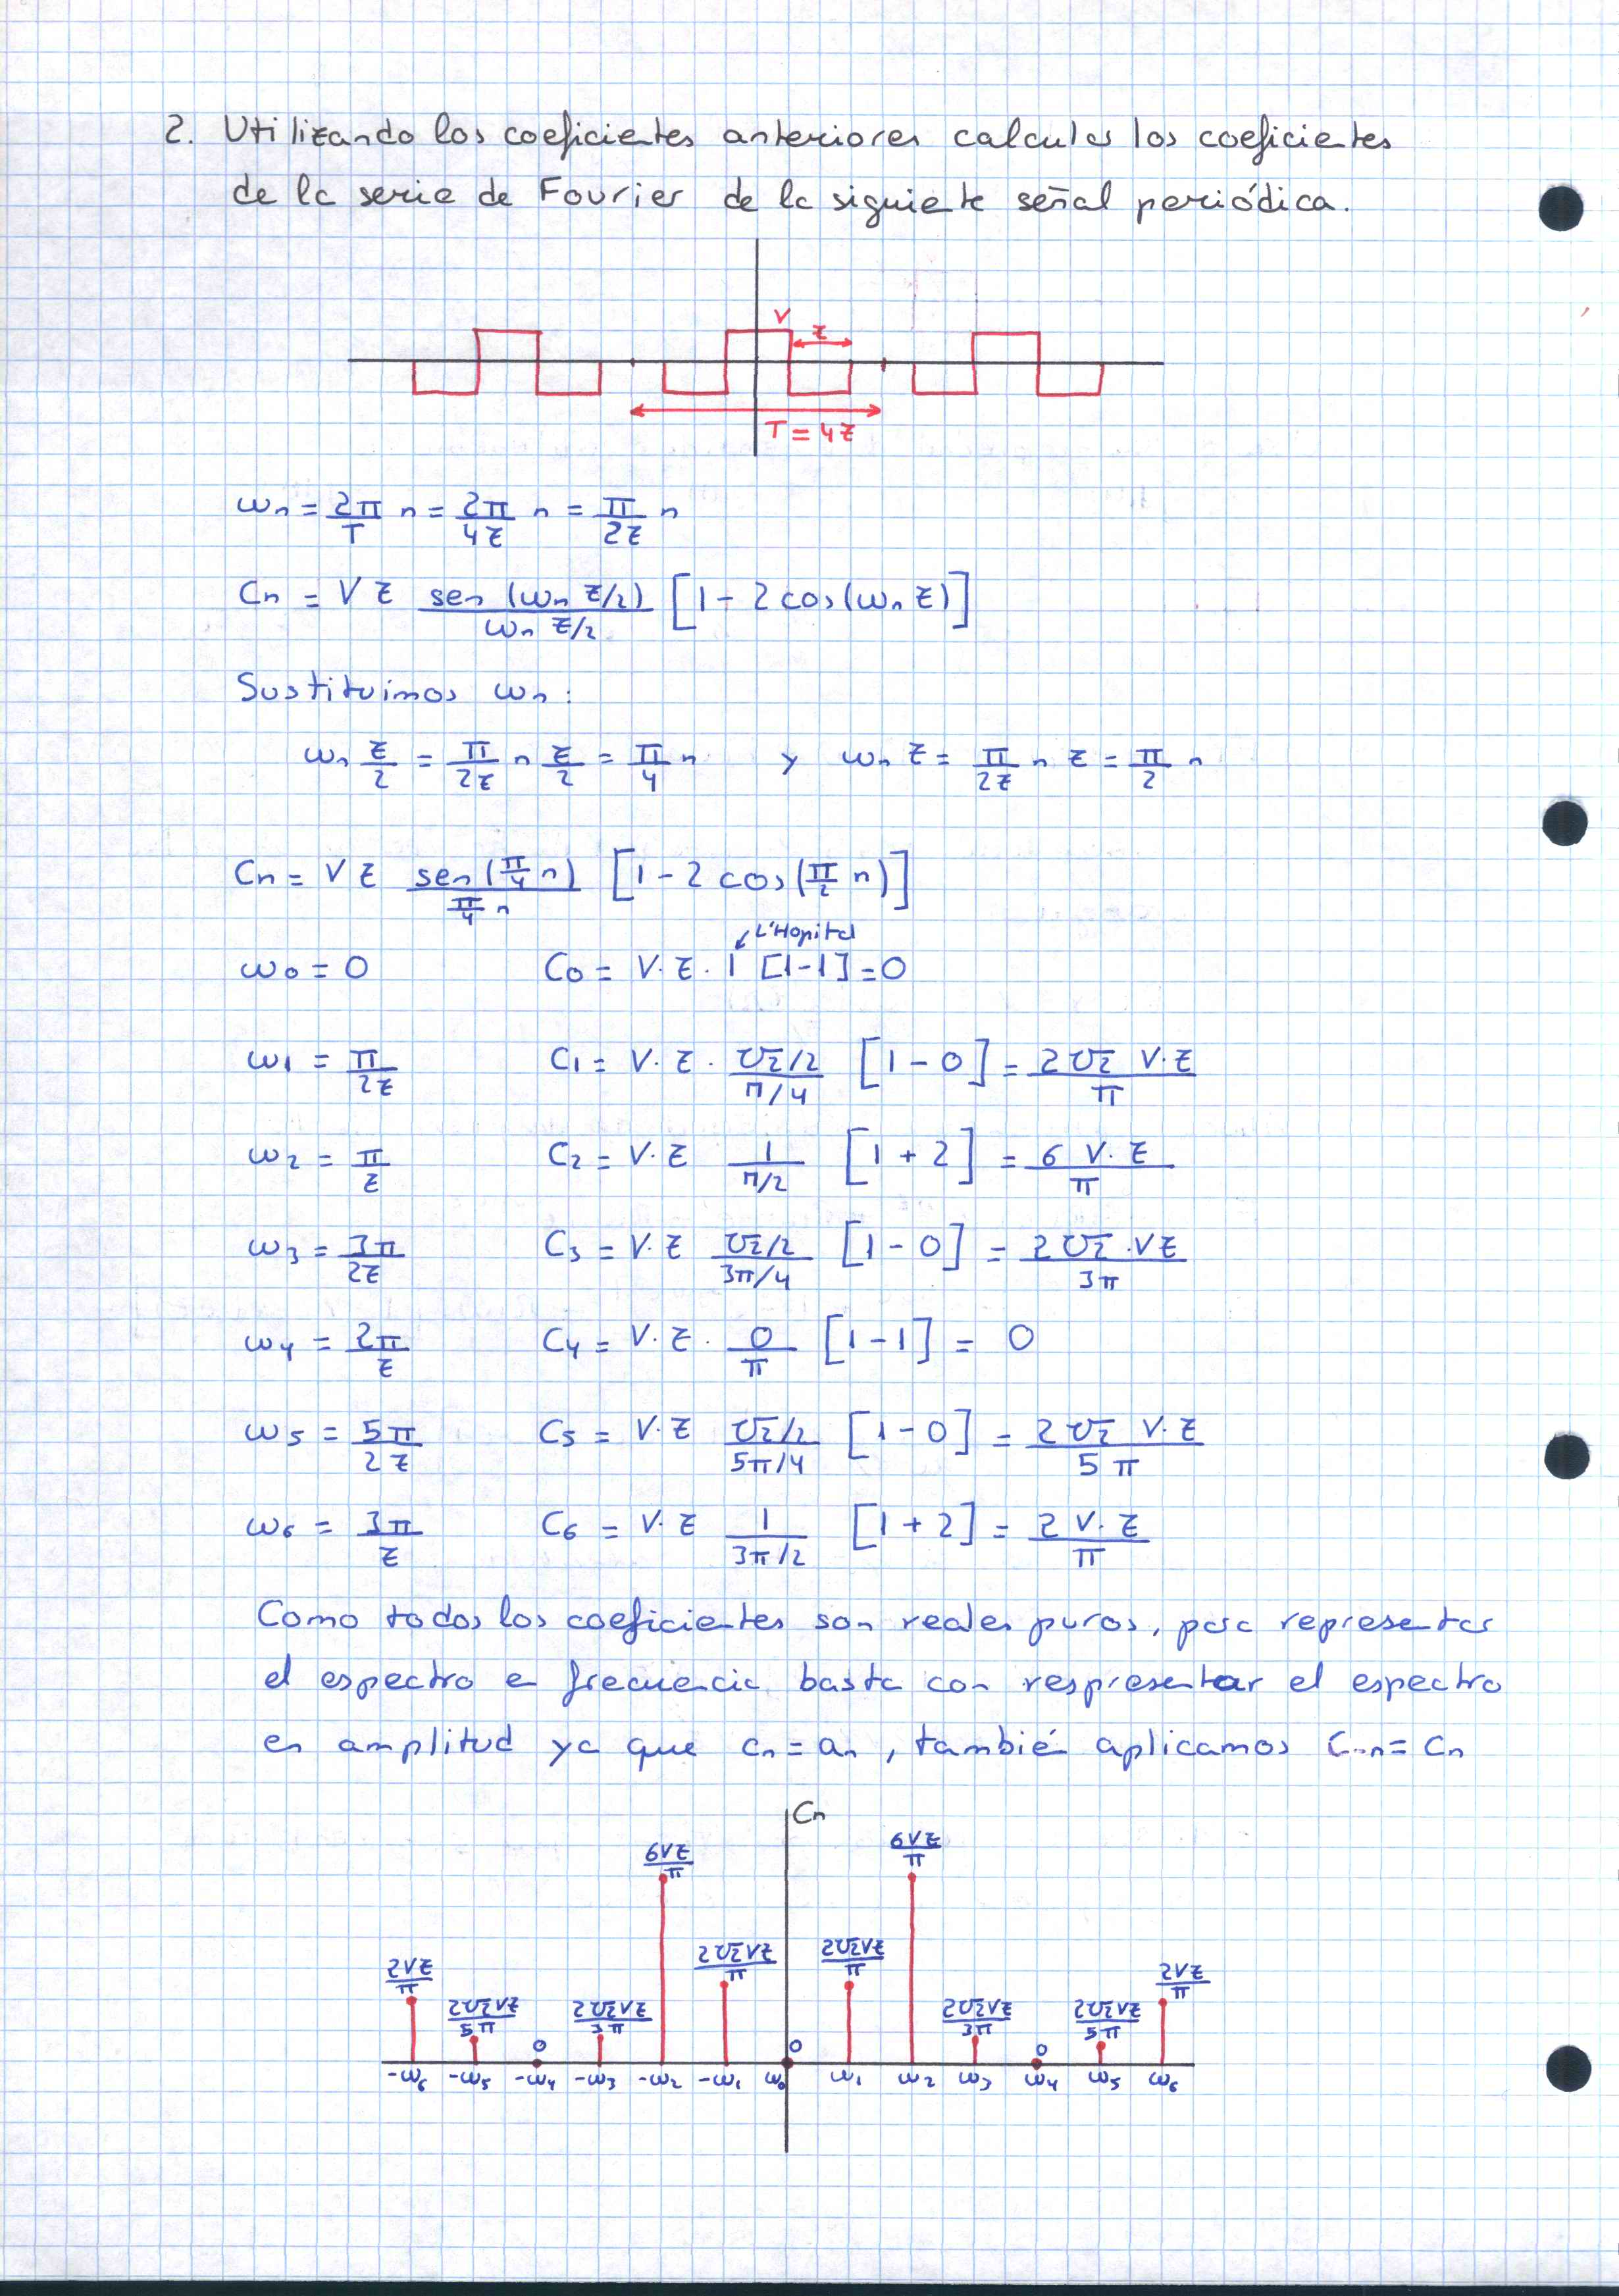 2. Utilizando los coeficientes anteriores calcular los coeficientes
de la serie de Fourier de la siguiente señal periódica.
V
z
T = 4z
ωn = 2π/T n = 2π/4z n = π/2z n
Cn = V z sen (ωn z/2) / ωn z/2 [1 - 2 cos (ωn z)]
Sustituimos ωn:
ωn z/2 = π/2z n z/2 = π/4 n y ωn z = π/2z n z = π/2 n
Cn = V z sen (π/4 n) / π/4 n [1 - 2 cos (π/2 n)]
↙ L'Hopital
ω0 = 0 C0 = V·z·1 [1-1] = 0
ω1 = π/2z C1 = V·z · √2/2 / π/4 [1 - 0] = 2√2 V·z / π
ω2 = π/z C2 = V·z 1 / π/2 [1 + 2] = 6 V·z / π
ω3 = 3π/2z C3 = V·z √2/2 / 3π/4 [1 - 0] = 2√2 ·Vz / 3π
ω4 = 2π/z C4 = V·z · 0/π [1-1] = 0
ω5 = 5π/2z C5 = V·z √2/2 / 5π/4 [1-0] = 2√2 V·z / 5π
ω6 = 3π/z C6 = V·z 1 / 3π/2 [1 + 2] = 2 V·z / π
Como todos los coeficientes son reales puros, para representar
el espectro en frecuencia basta con respresentar el espectro
en amplitud ya que cn = an, también aplicamos C-n = Cn
Cn
6Vz/π 6Vz/π
2Vz/π 2√2Vz/5π 0 2√2Vz/3π 2√2Vz/π 0 2√2Vz/π 2√2Vz/3π 0 2√2Vz/5π 2Vz/π
-ω6 -ω5 -ω4 -ω3 -ω2 -ω1 ω0 ω1 ω2 ω3 ω4 ω5 ω6